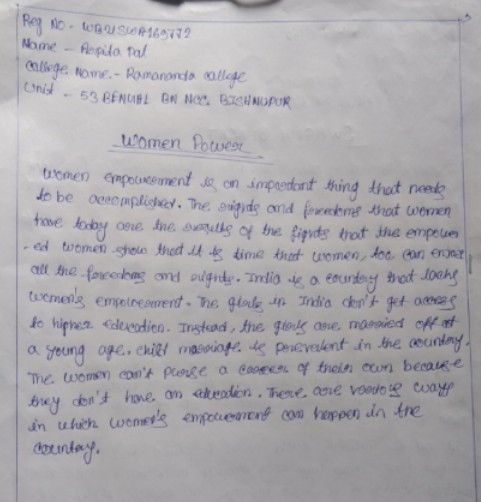 Reg No - WB21SWA169772
Name - Arpita Pal
College Name - Ramananda College
Unit - 53 BENGAL BN NCC. BISHNUPUR
Women Power
Women empowerment is an important thing that needs
to be accomplished. The rights and freedoms that women
have today are the results of the fights that the empower
-ed women show that it is time that women, too can enact
all the freedoms and rights. India is a country that lacks
women's empowerment. The girls in India don't get access
to higher education. Instead, the girls are married off at
a young age. child marriage is prevelent in the country.
The women can't purse a career of their own because
they don't have an education. There are various ways
in which women's empowerment can happen in the
country.